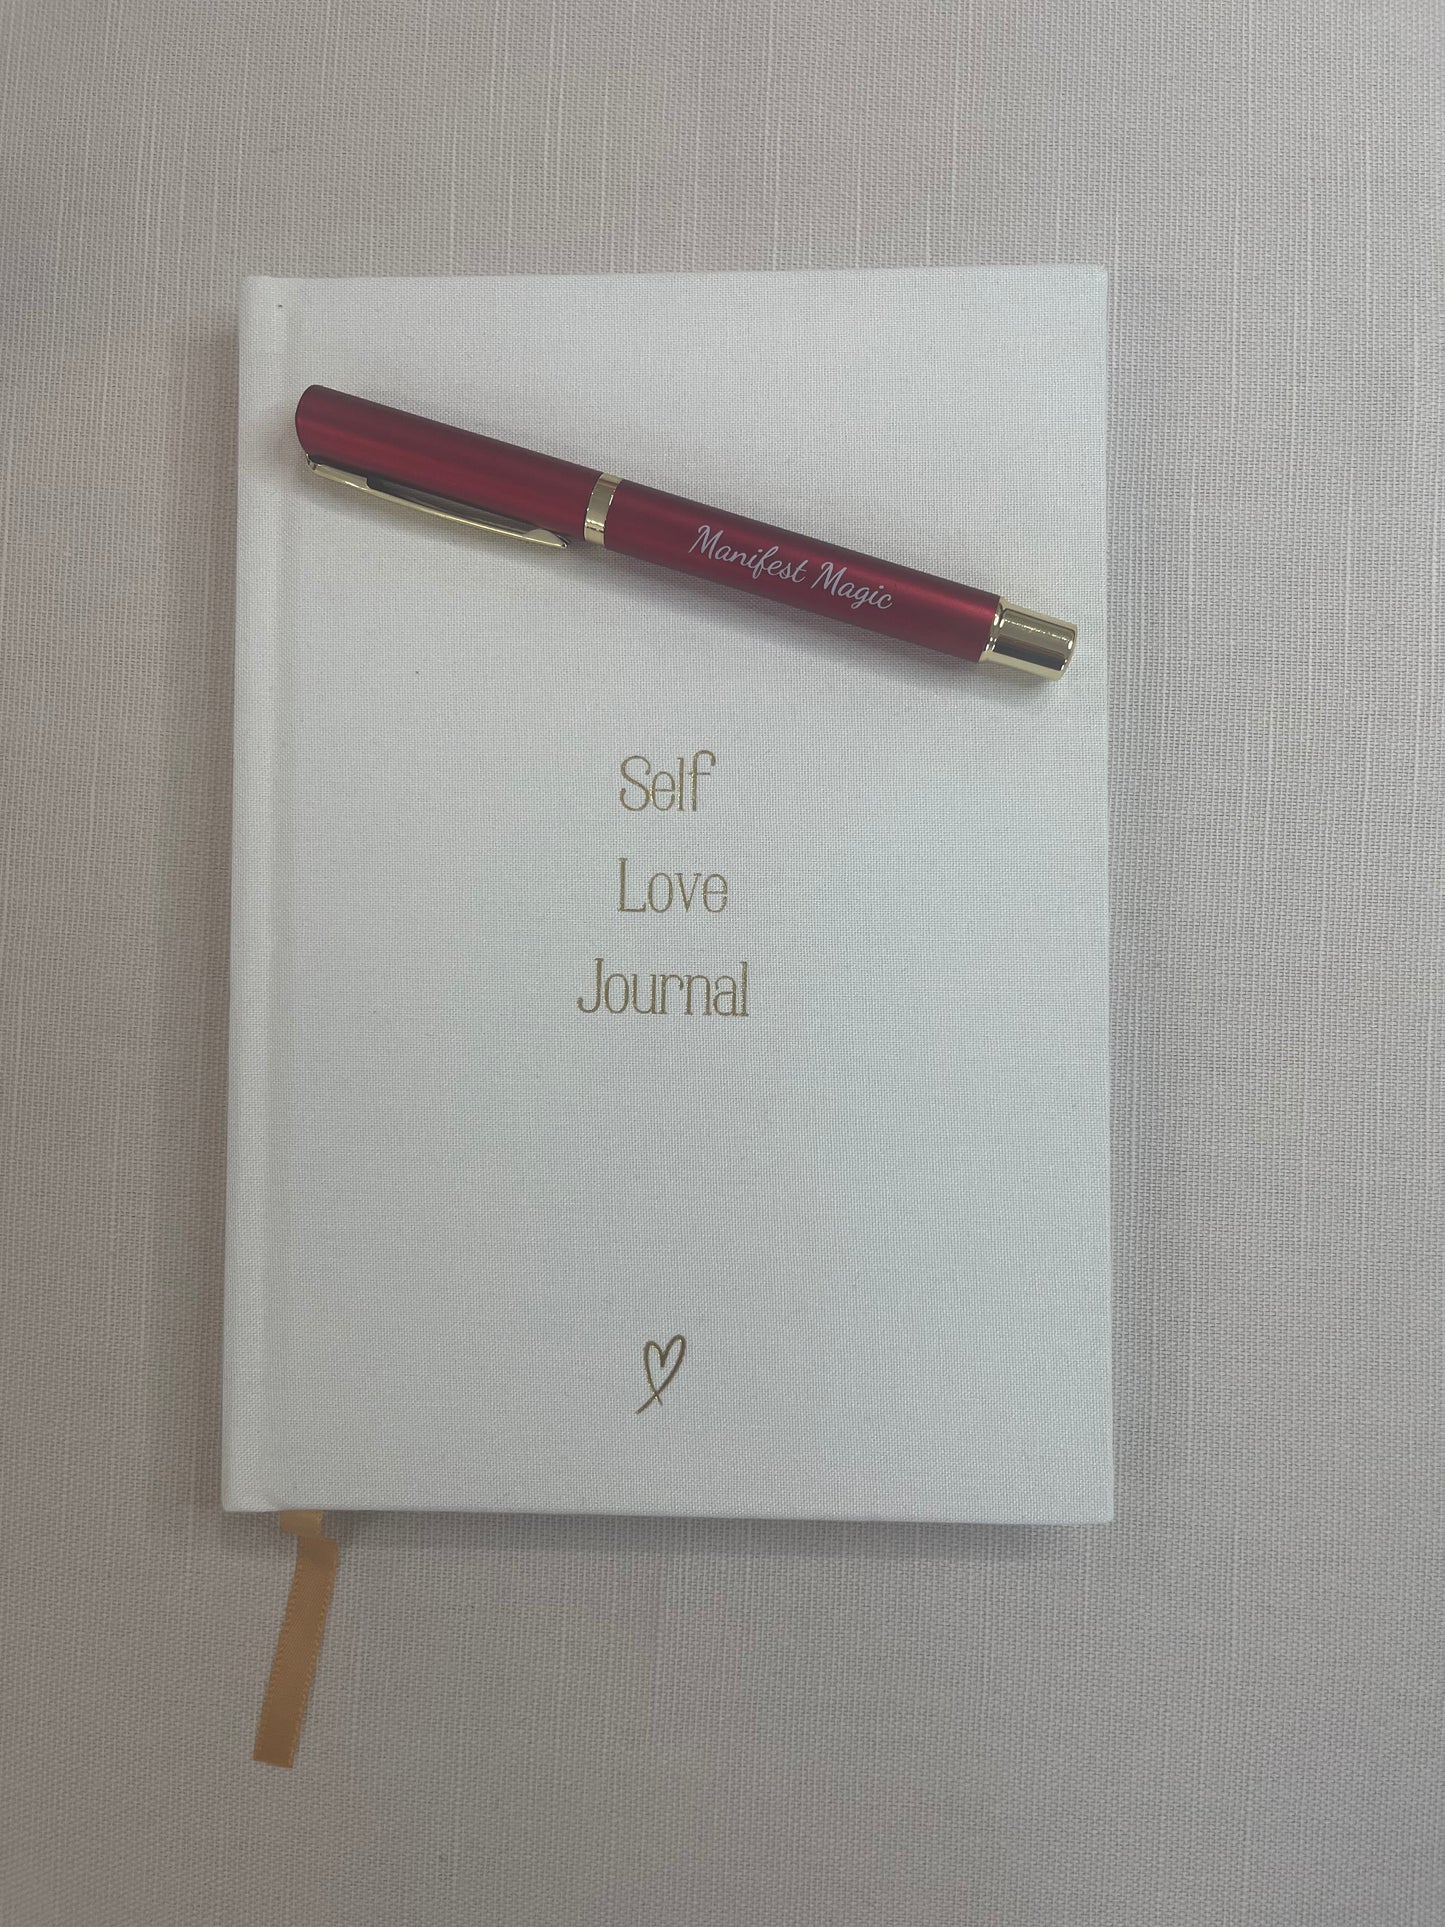 Manifest Magic
Self
Love
Journal